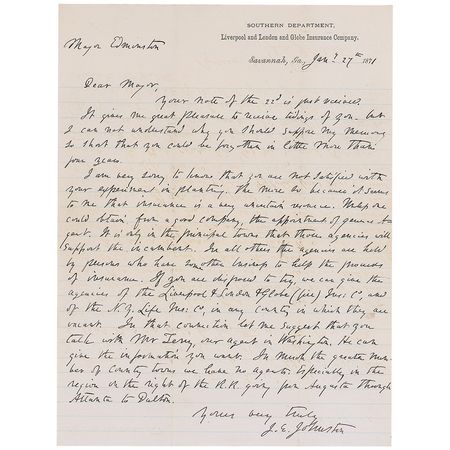 SOUTHERN DEPARTMENT,
Liverpool and London and Globe Insurance Company.
Major Edmonston
Savannah, Ga., Jany. 27th 1871
Dear Major,
Your note of the 22d is just received.
It gives me great pleasure to receive tidings of you. but
I can not understand why you should suppose my memory
so short that you could be forgotten in little more than
four years.
I am very sorry to know that you are not satisfied with
your experiment in planting. The more so because it seems
to me that insurance is a very uncertain resource. Unless one
could obtain from a good company, the appointment of general a-
gent. It is only in the principal towns that those agencies will
support the incumbent. In all others the agencies are held
by persons who have some other business to help the proceeds
of insurance. If you are disposed to try, we can give the
agencies of the Liverpool & London & Globe (fire) Ins: Co, and
of the N.Y. Life Ins: Co, in any county in which they are
vacant. In that connection let me suggest that you
talk with Mr our agent in Washington. He can
give the information you want. In much the greater num-
ber of County towns we have no agents. Especially in the
region on the right of the R.R. going from Augusta through
Atlanta to Dalton.
Yours very truly
J. E. Johnston